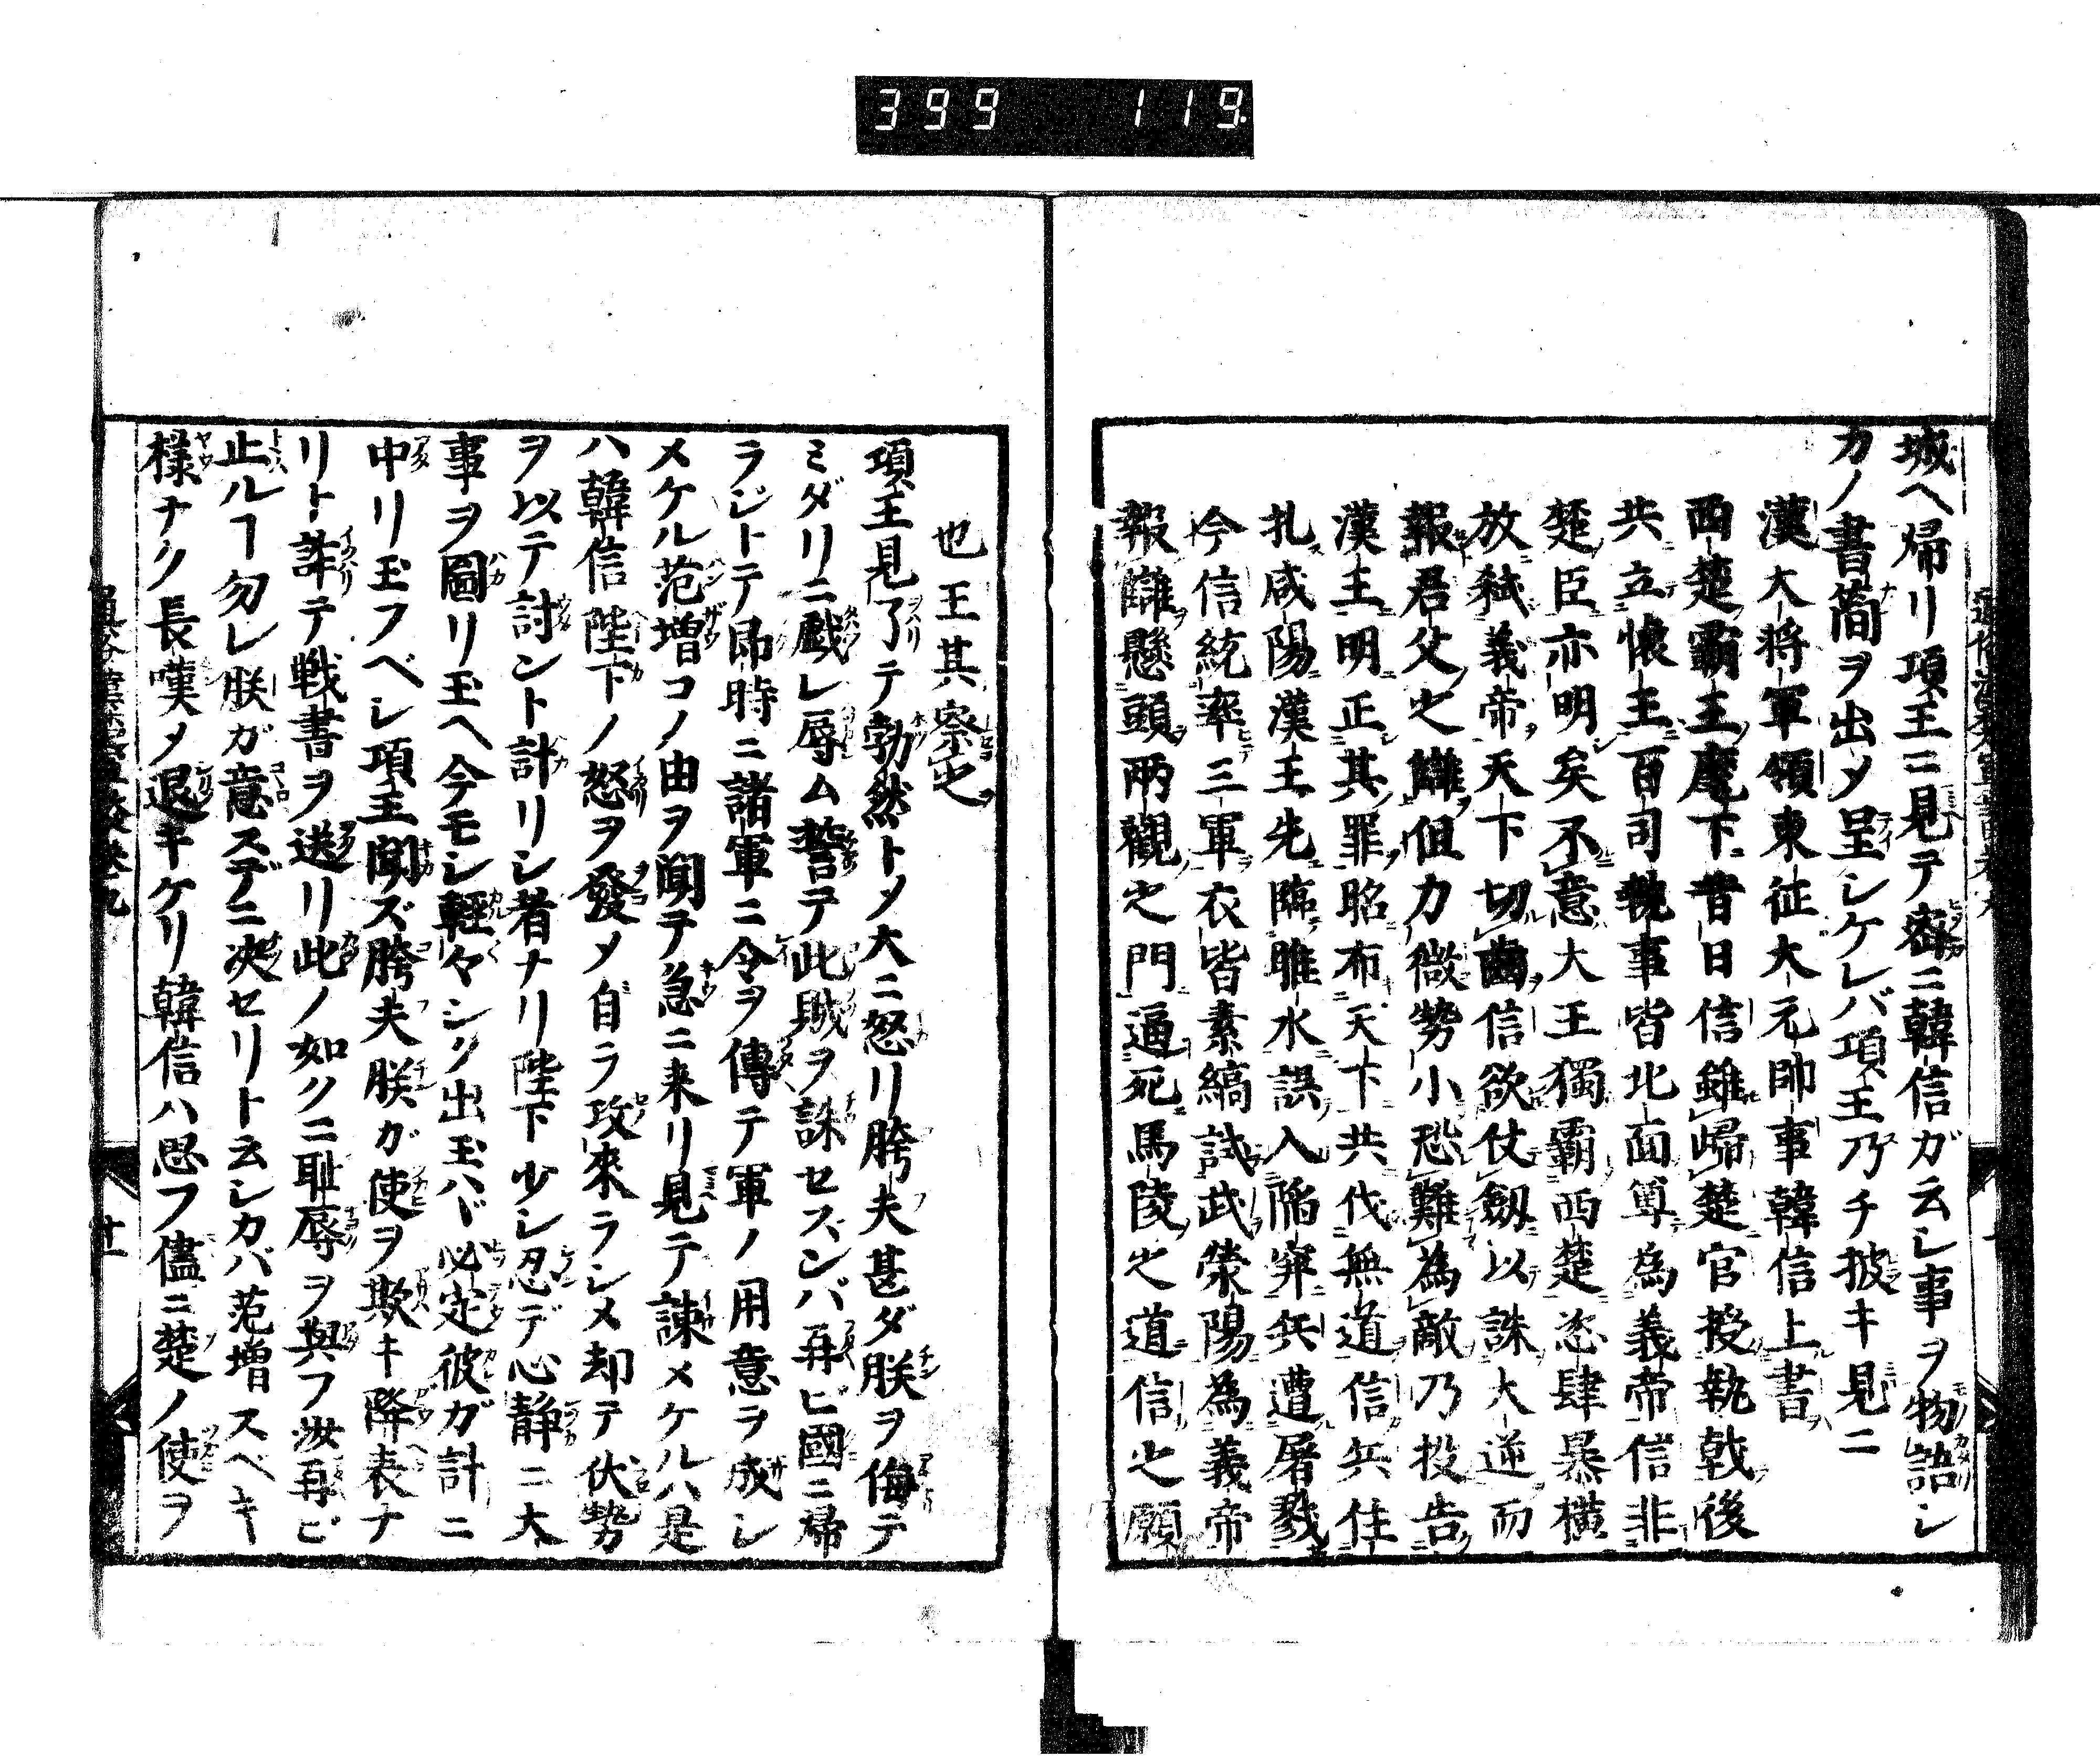 399 119
城ヘ帰リ項王ニ見テ密ニ韓信ガ云シ事ヲ物語シ
カノ書簡ヲ出メ呈シケレバ項王乃チ披キ見ニ
漢大将軍領東征大元帥事韓信上書
西楚覇王麾下昔日信雖帰楚官授執戟後
共立懐王百司執事皆北面尊為義帝信非
楚臣亦明矣不意大王獨霸西楚恣肆暴横
放弑義帝天下切齒信欲仗劔以誅大逆而
報君父之讎但力微勢小恐難為敵乃投告
漢王明正其罪昭布天下共伐無道信兵住
扎咸陽漢王先臨睢水誤入陥穽兵遭屠戮
今信統率三軍衣皆素縞試武滎陽為義帝
報讎懸頭兩觀之門逼死馬陵之道信之願
也王其察之
項王見了テ勃然トメ大ニ怒リ胯夫甚ダ朕ヲ侮テ
ミダリニ戯レ辱ム誓テ此賊ヲ誅セズンバ再ビ國ニ帰
ラジトテ即時ニ諸軍ニ令ヲ傳テ軍ノ用意ヲ成シ
メケル范増コノ由ヲ聞テ急ニ来リ見テ諌メケルハ是
ハ韓信陛下ノ怒ヲ發メ自ラ攻來ラシメ却テ伏勢
ヲ以テ討ント計リシ者ナリ陛下少シ忍デ心静ニ大
事ヲ圖リ玉ヘ今モシ軽々シク出玉ハヾ必定彼ガ計ニ
中リ玉フベシ項王聞ズ胯夫朕ガ使ヲ欺キ降表ナ
リト詐テ戦書ヲ送リ此ノ如クニ耻辱ヲ與フ汝再ビ
止ルヿ勿レ朕ガ意スデニ决セリト云シカバ范増スベキ
様ナク長嘆メ退キケリ韓信ハ思フ儘ニ楚ノ使ヲ
十一